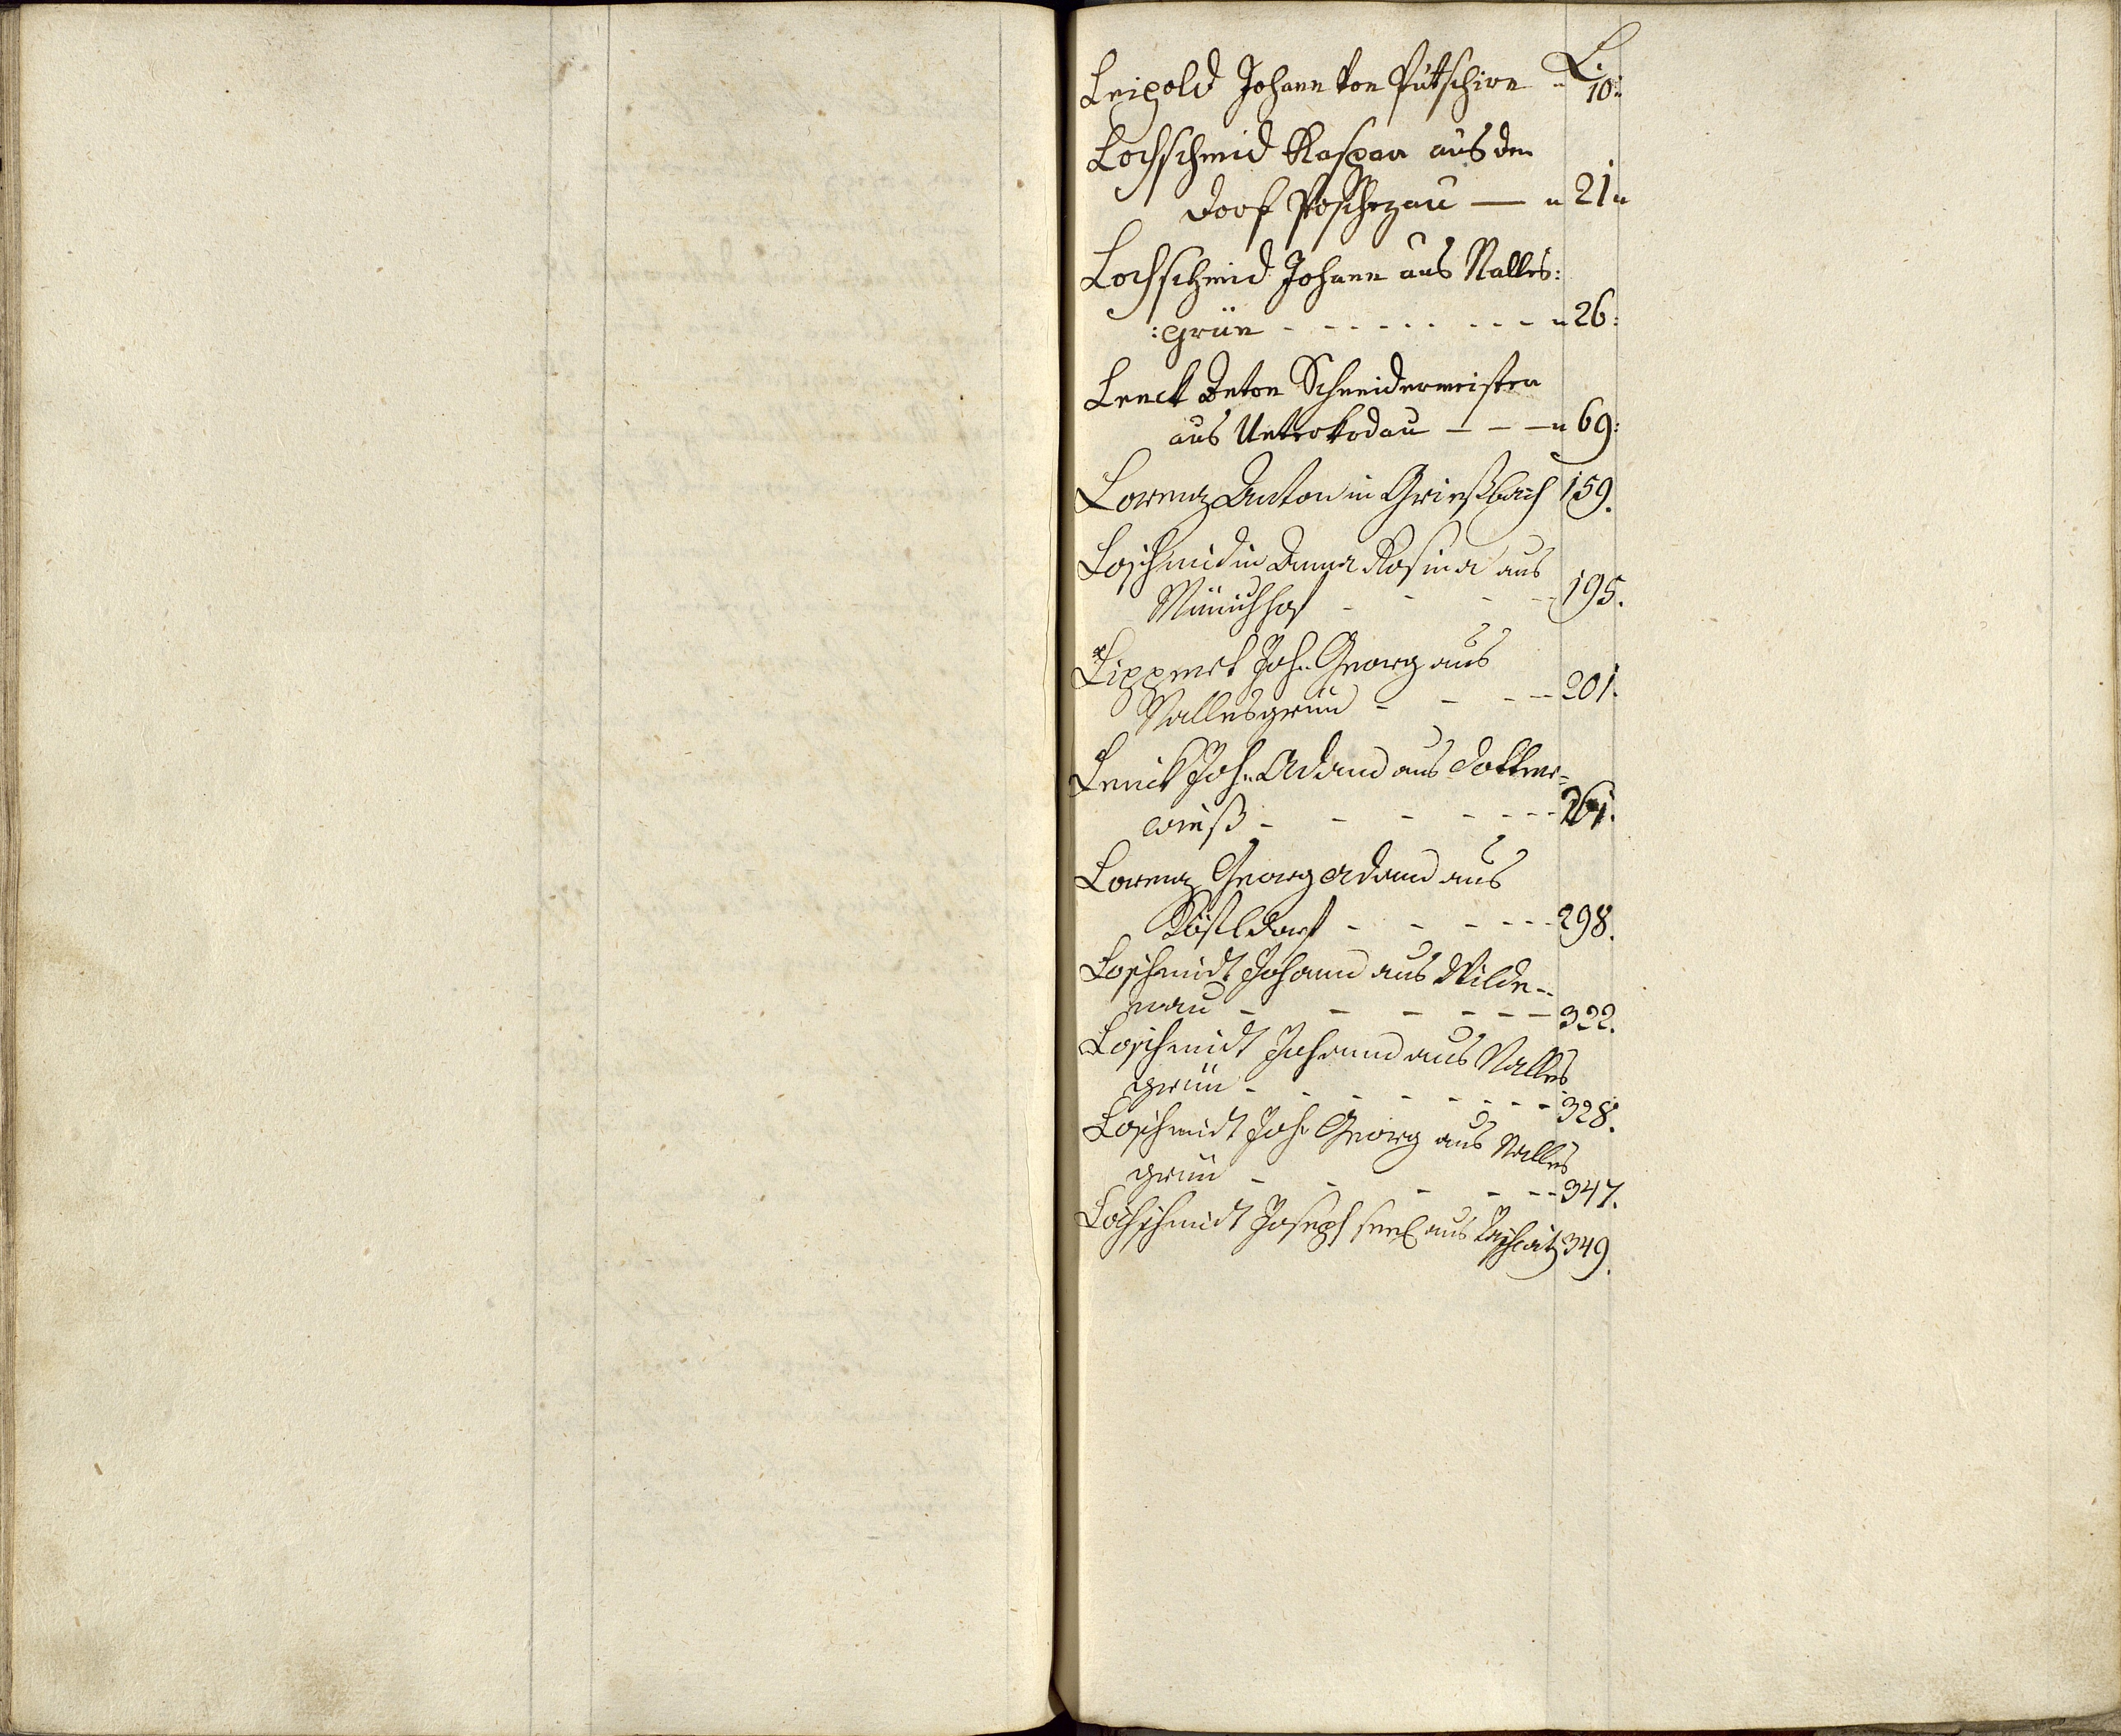 L.
Leipold Johann von Püttschirn " 10:
Lochschmid Kaspar aus den
Dorf Poschezau — " 21 "
Lochschmid Johann aus Nalles:
:grün - - - - - - - - " 26:
Lenck Anton Schneidermeister
aus Unterkodau - - - " 69:
Lorenz Anton in Grießbach 159.
Loschmidin Anna Rosina aus
Münichhof - - - - 195.
Lippert Joh. Georg aus
Nallesgrün - - - - 201.
Lenck Joh. Adam aus Dotter=
wieß - - - - - - - 261.
Lorenz Georg Adam aus
Kösteldorf - - - - - - 298.
Loschmidt Johann aus Wilde-
nau - - - - - - 322.
Loschmidt Johann aus Nalles
grün - - - - - - - - 328.
Loschmidt Joh. Georg aus Nalles
grün - - - - - - 347.
Lochschmidt Joseph aus 349.